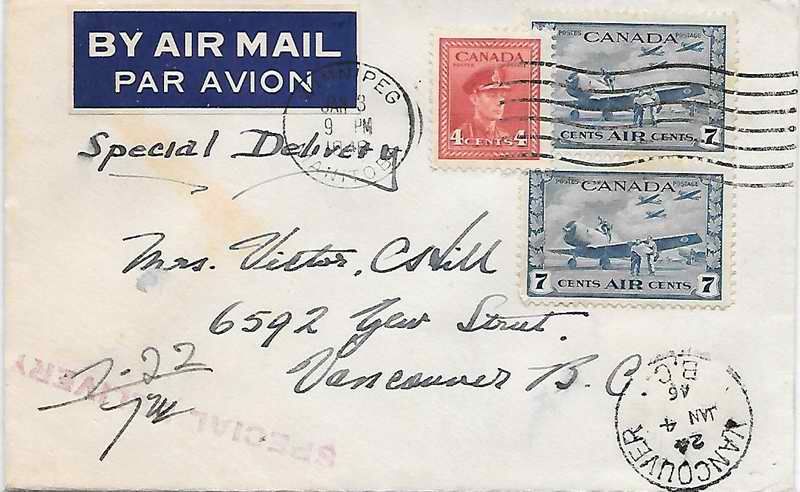 BY AIR MAIL
PAR AVION
WINNIPEG
JAN 3
9 PM
MANITOBA
CANADA
POSTES POSTAGE
4 CENTS 4
CANADA
POSTES POSTAGE
CENTS AIR CENTS 7
CANADA
POSTES POSTAGE
7 CENTS AIR CENTS 7
Special Delivery
Mrs. Victor, C Hill
6592 Yew Street.
Vancouver B.C.
SPECIAL DELIVERY
VANCOUVER
24
JAN 4
46
B.C.